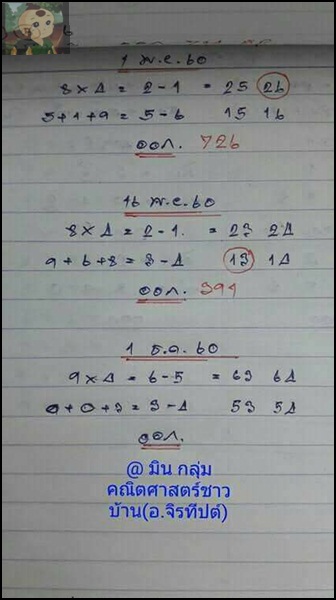 1 พ.ย. 60
8 x 4 = 2 - 1 = 25 26
5 + 1 + 9 = 5 - 6 15 16
ออก. 726
16 พ.ย. 60
8 x 4 = 2 - 1 = 23 24
9 + 6 + 8 = 3 - 4 13 14
ออก.
1 ธ.ค. 60
9 x 4 = 6 - 5 = 63 64
0 + 3 = 3 - 4 53 54
ออก.
@ มิน กลุ่ม
คณิตศาสตร์ชาว
บ้าน(อ.จิรทีปต์)